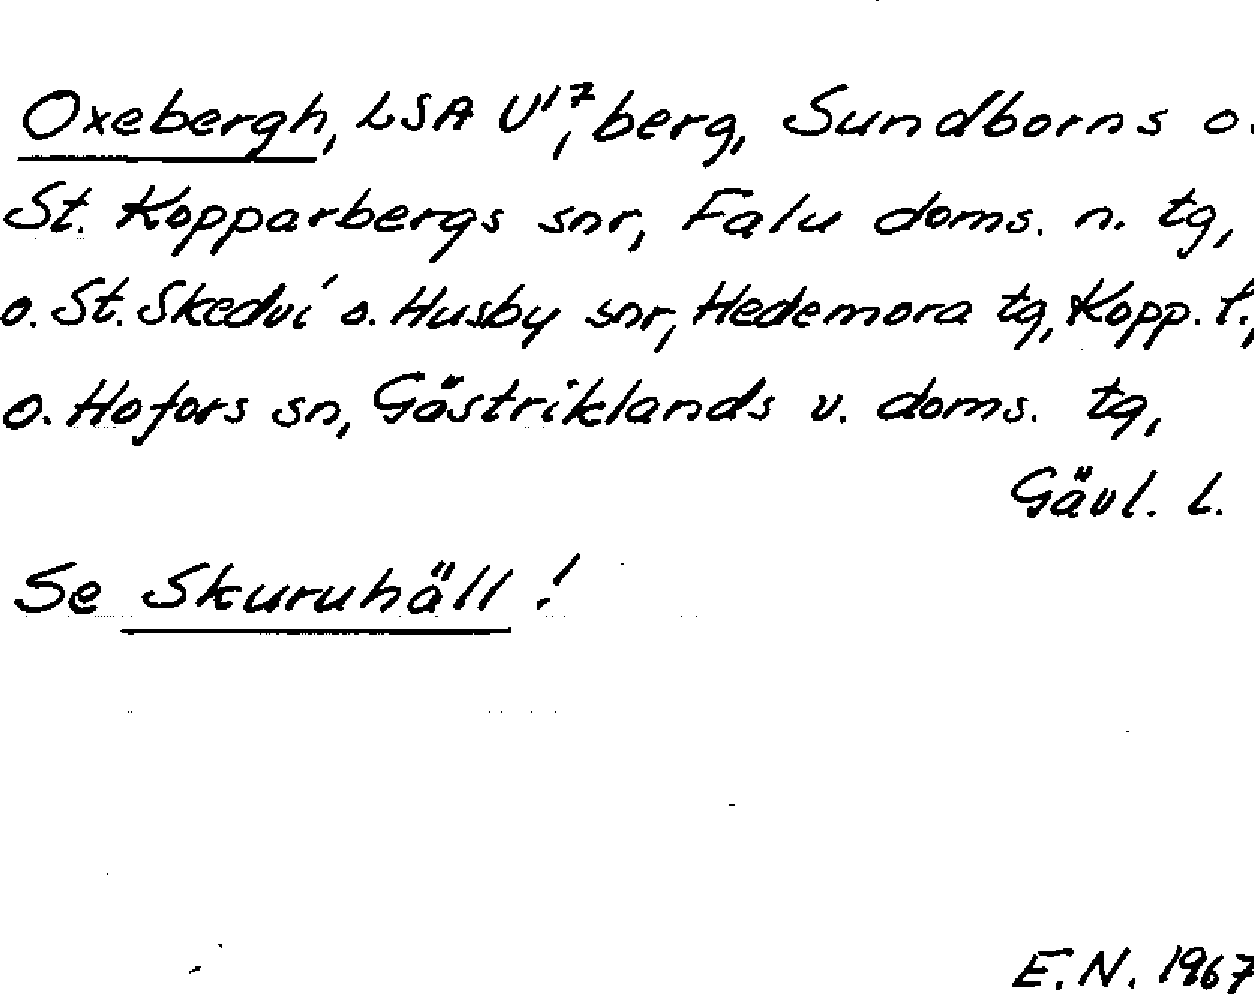 Oxebergh, LSA U¹⁷, berg, Sundborns o.
St. Kopparbergs snr, Falu doms. n. tg,
o. St. Skedvi o. Husby snr, Hedemora tg, Kopp. l.,
o. Hofors sn, Gästriklands v. doms. tg,
Gävl. l.
Se Skuruhäll!
E.N. 1967